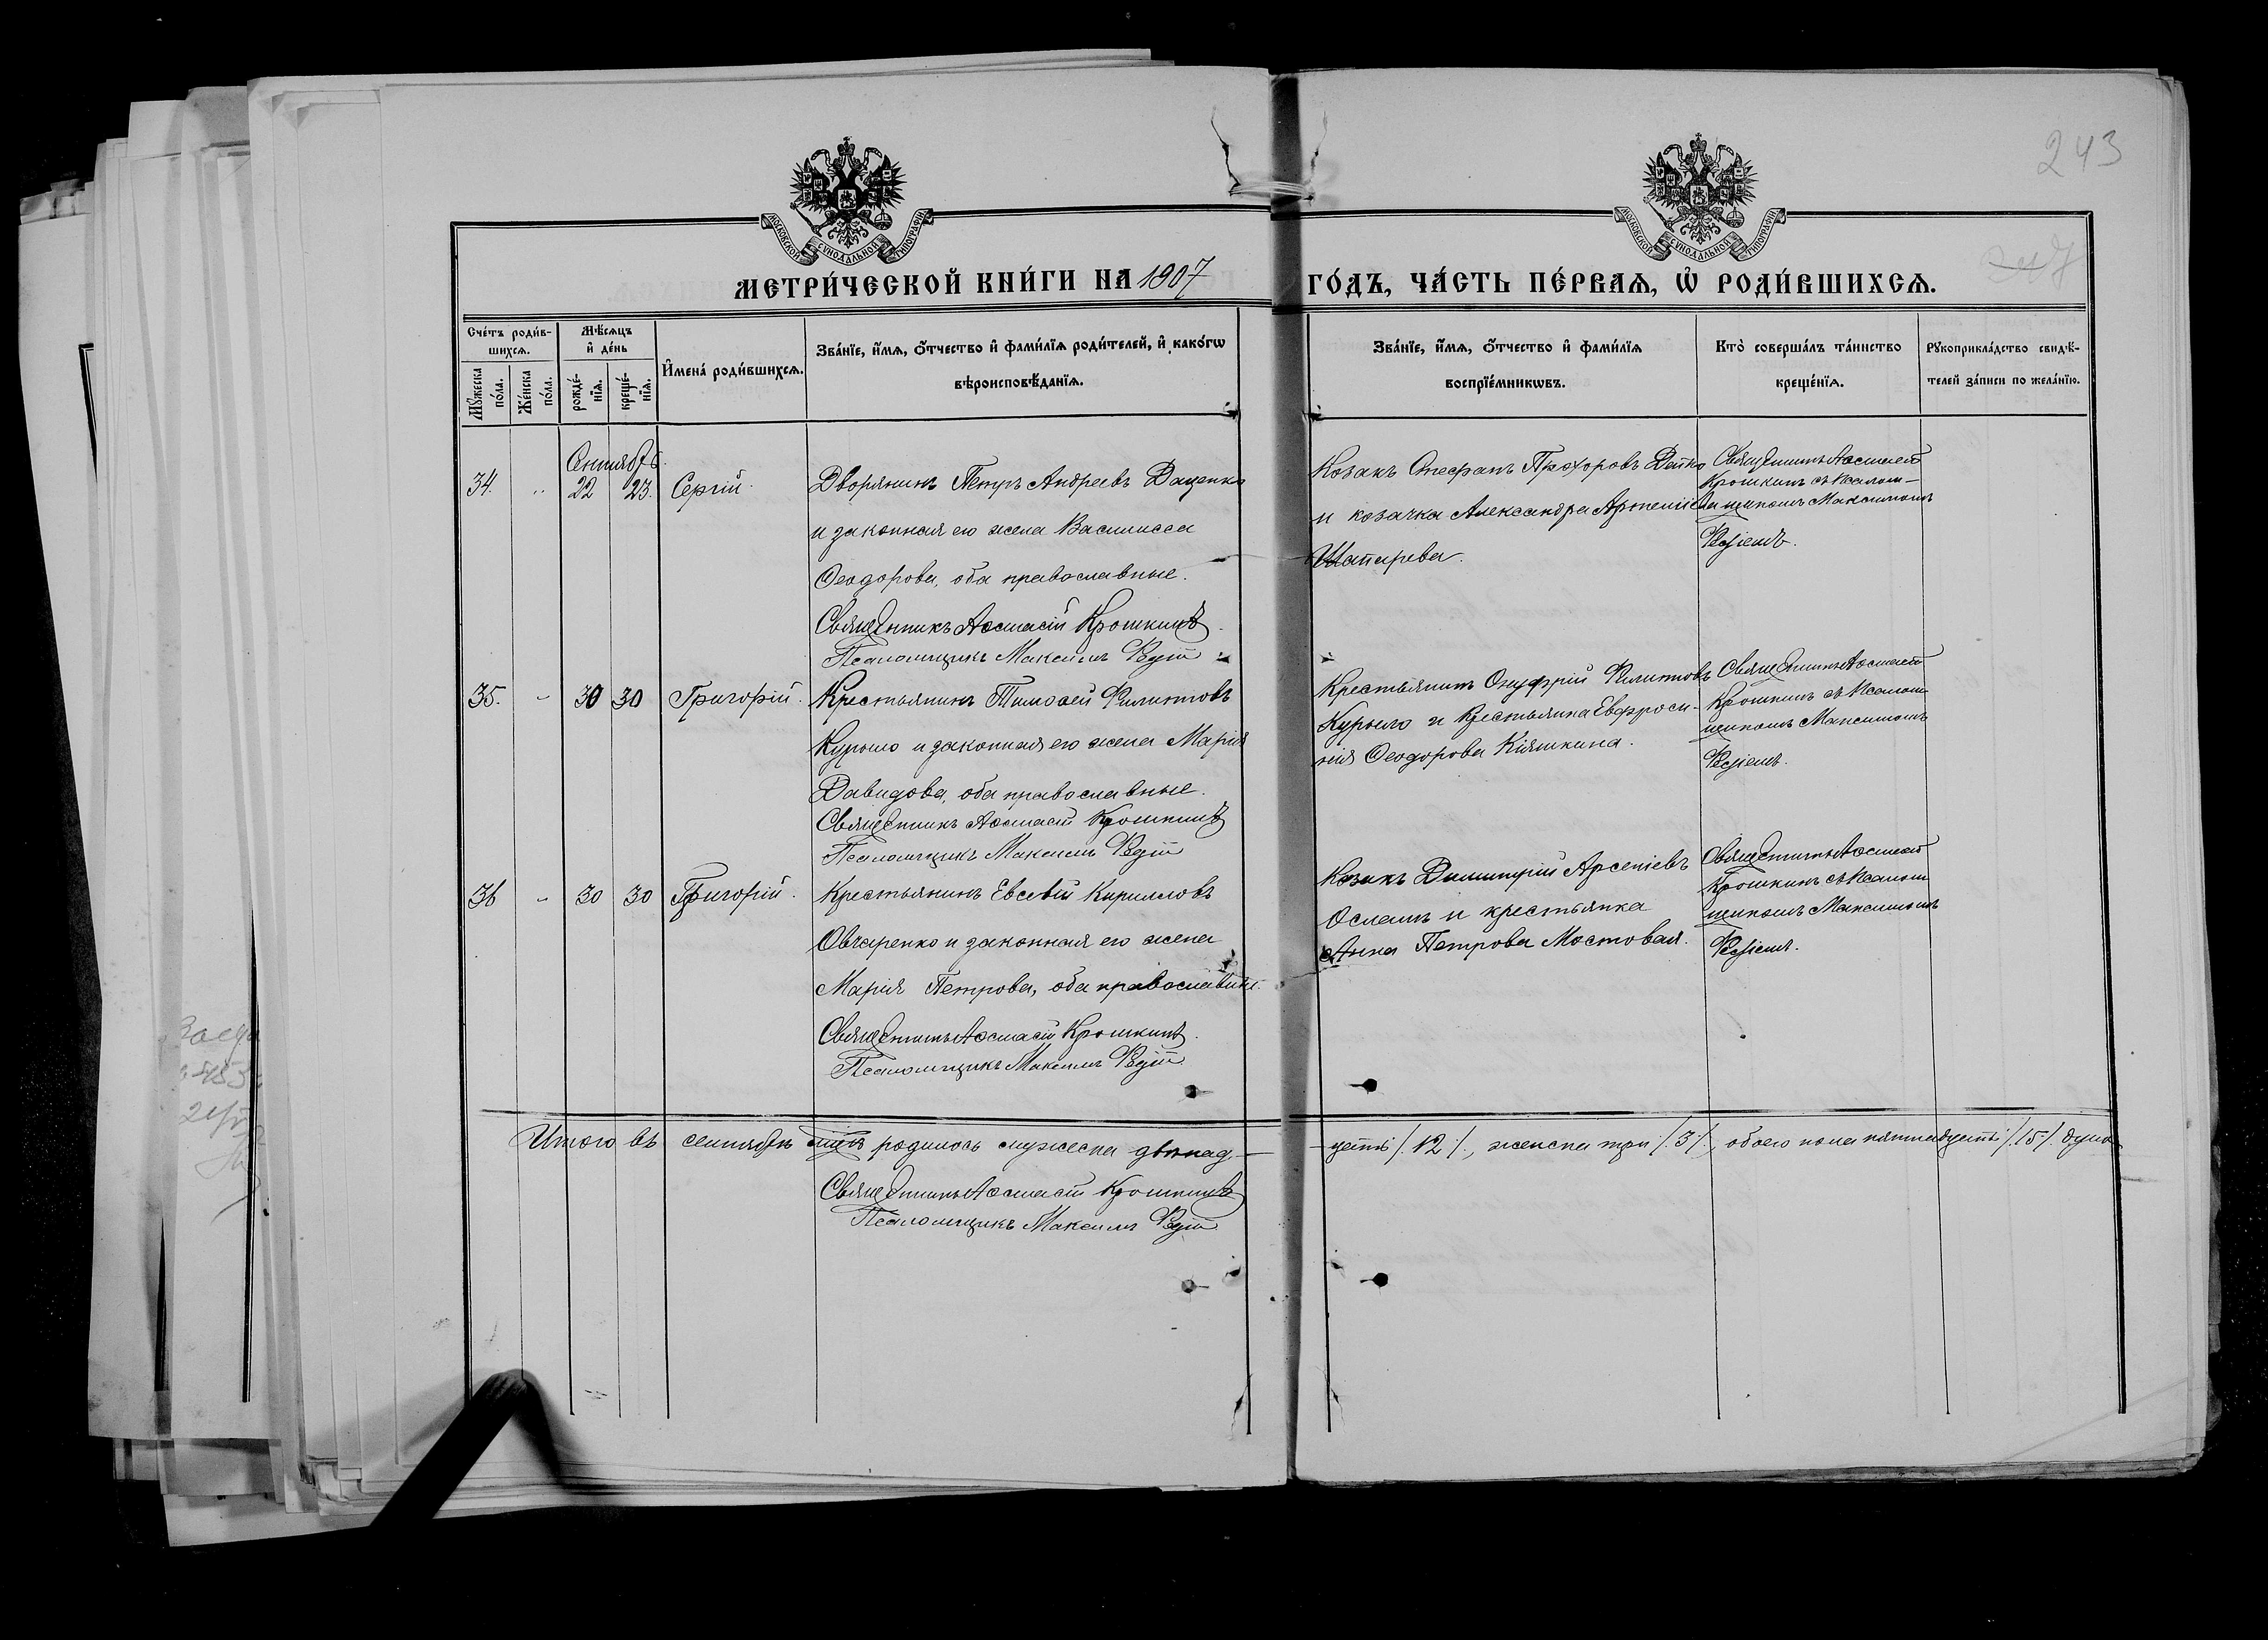 243
МОСКОВСКОЙ СѴНОДАЛЬНОЙ ТИПОГРАФІИ
МОСКОВСКОЙ СѴНОДАЛЬНОЙ ТИПОГРАФІИ
МЕТРИ́ЧЕСКОЙ КНИ́ГИ НА 1907 ГО́ДЪ, ЧА́СТЬ ПЕ́РВАѦ, Ѽ РОДИ́ВШИХСѦ.
Сче́тъ роди́в-
шихсѧ.
Мꙋ́жеска
по́ла.
Же́нска
по́ла.
Мѣ́сѧцъ
и҆ де́нь
рожде́-
нїѧ.
креще́-
нїѧ.
И҆мена̀ роди́вшихсѧ.
Зва́нїе, и҆́мѧ, ѻ҆́тчество и҆ фами́лїѧ роди́телей, и҆ како́гѡ
вѣроисповѣ́данїѧ.
Зва́нїе, и҆́мѧ, ѻ҆́тчество и҆ фами́лїѧ
воспрїе́мникѡвъ.
Кто̀ соверша́лъ та́инство
креще́нїѧ.
Рꙋкоприкла́дство свидѣ́-
телей за́писи по жела́нїю.
Сентябрь
34. „ 22 23. Сергій.
Дворянинъ Петръ Андреевъ Даценко
и законная его жена Василисса
Ѳеодорова, оба православные.
Священникъ Аѳанасій Крошкинъ
Псаломщикъ Максимъ
Козакъ Стефанъ Прохоровъ Дейко
и козачка Александра Артеміева
Шапарева.
Священникъ Аѳанасій
Крошкинъ съ Псалом-
щикомъ Максимомъ
35. „ 30 30 Григорій.
Крестьянинъ Тимоѳей Филиповъ
Курыло и законная его жена Марія
Давидова, оба православные.
Священникъ Аѳанасій Крошкинъ
Псаломщикъ Максимъ
Крестьянинъ Онуфрій Филиповъ
Курыло и крестьянка Евфроси-
нія Ѳеодорова Кіяшкина.
Священникъ Аѳанасій
Крошкинъ съ Псалом-
щикомъ Максимомъ
36 „ 30 30 Григорій.
Крестьянинъ Евсевій Кирилловъ
Овчаренко и законная его жена
Марія Петрова, оба православные.
Священникъ Аѳанасій Крошкинъ.
Псаломщикъ Максимъ
Козакъ Димитрій Арсеніевъ
Осламъ и крестьянка
Анна Петрова Мостовая.
Священникъ Аѳанасій
Крошкинъ съ Псалом-
щикомъ Максимомъ
Итого въ сентябрѣ родилось мужеска двѣнад-
цать /.12/., женска три /.3/., обоего пола пятнадцать /.15/. душъ
Священникъ Аѳанасій Крошкинъ
Псаломщикъ Максимъ